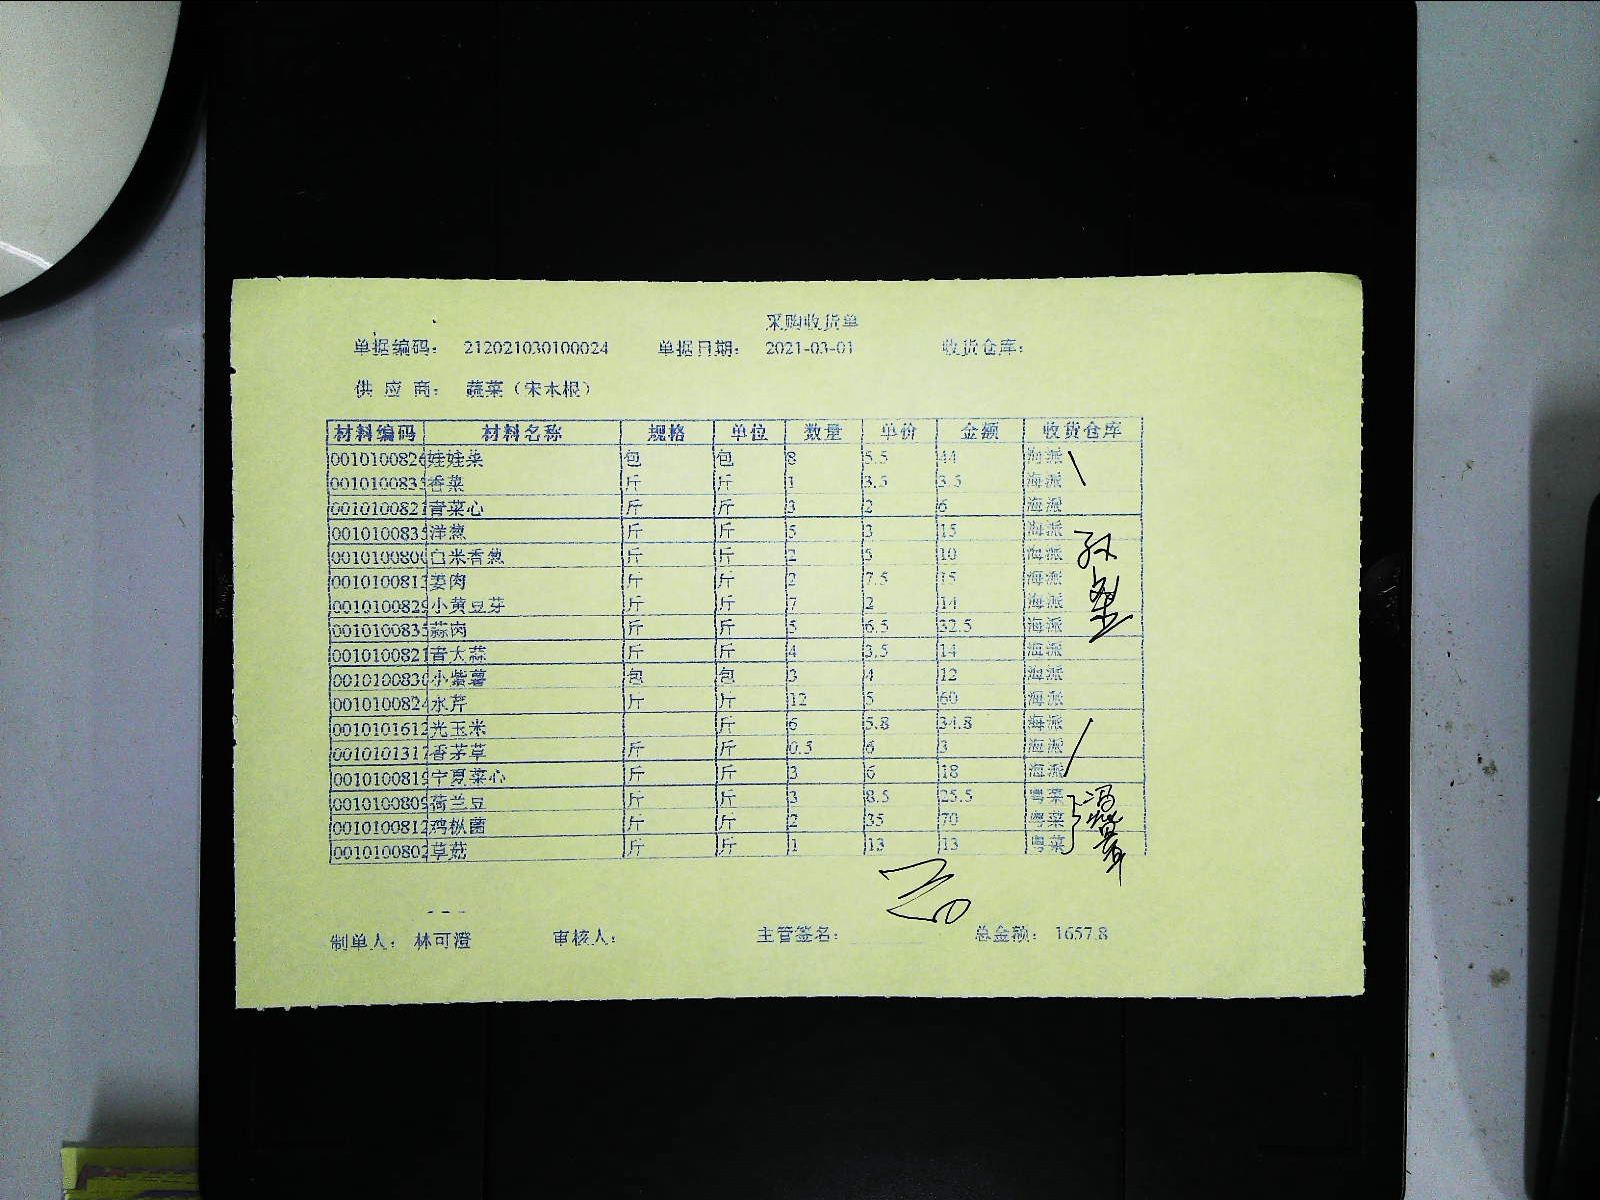 采购收货单
单据编码： 212021030100024 单据日期： 2021-03-01 收货仓库：
供 应 商： 蔬菜（宋本根）
材料编码 材料名称 规格 单位 数量 单价 金额 收货仓库
0010100826 娃娃菜 包 包 8 5.5 44 海派
0010100835 香菜 斤 斤 1 3.5 3.5 海派
0010100821 青菜心 斤 斤 3 2 6 海派
0010100835 洋葱 斤 斤 5 3 15 海派
0010100800 白米香葱 斤 斤 2 5 10 海派
0010100813 姜肉 斤 斤 2 7.5 15 海派
0010100829 小黄豆芽 斤 斤 7 2 14 海派
0010100835 蒜肉 斤 斤 5 6.5 32.5 海派
0010100821 青大蒜 斤 斤 4 3.5 14 海派
0010100830 小紫薯 包 包 3 4 12 海派
0010100824 水芹 斤 斤 12 5 60 海派
0010101612 光玉米 斤 6 5.8 34.8 海派
0010101317 香茅草 斤 斤 0.5 6 3 海派
0010100819 宁夏菜心 斤 斤 3 6 18 海派
0010100809 荷兰豆 斤 斤 3 8.5 25.5 粤菜
0010100812 鸡枞菌 斤 斤 2 35 70 粤菜
0010100802 草菇 斤 斤 1 13 13 粤菜
制单人： 林可澄 审核人： 主管签名： 总金额： 1657.8